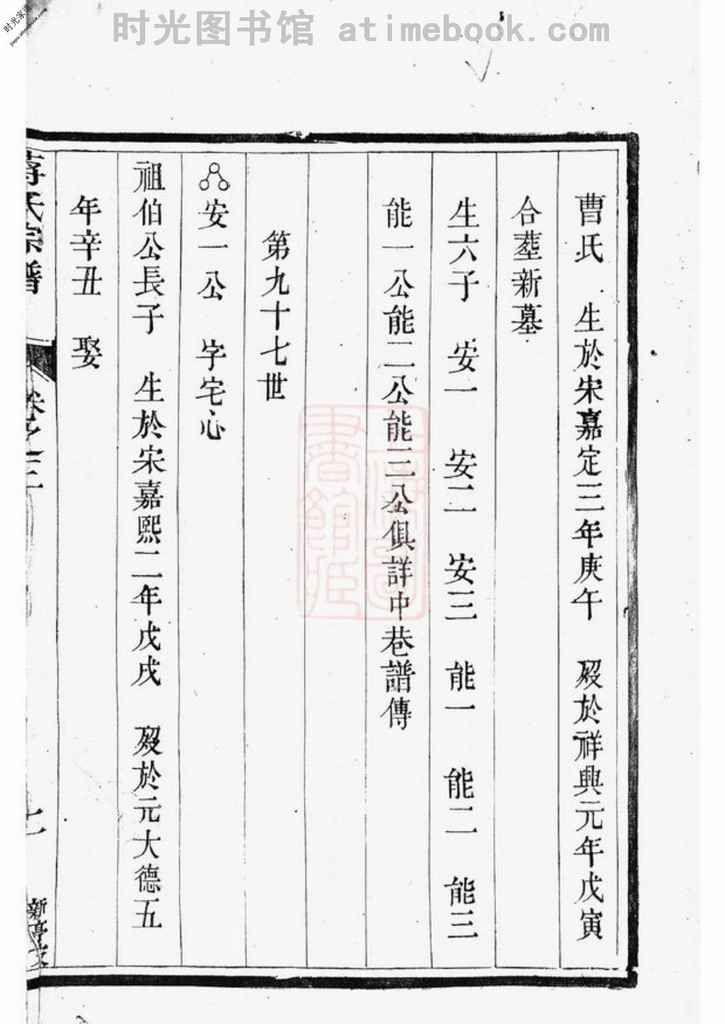 时光图书馆 atimebook.com
曹氏 生於宋嘉定三年庚午 歿於祥興元年戊寅
合塟新墓
生六子 安一 安二 安三 能一 能二 能三
能一公能二公能三公俱詳中巷譜傳
第九十七世
安一公 字宅心
祖伯公長子 生於宋嘉熙二年戊戌 歿於元大德五
年辛丑 娶
蔣氏宗譜 卷之三